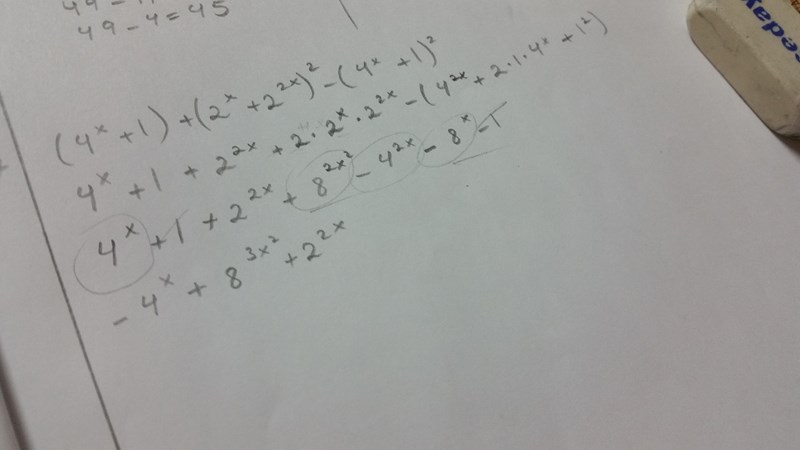 49 - 4 = 45
(4ˣ + 1) + (2ˣ + 2²ˣ)² - (4ˣ + 1)²
4ˣ + 1 + 2²ˣ + 2 · 2ˣ · 2²ˣ - (4²ˣ + 2 · 1 · 4ˣ + 1²)
4ˣ + 1 + 2²ˣ + 8²ˣ² - 4²ˣ - 8ˣ - 1
- 4ˣ + 8³ˣ² + 2²ˣ